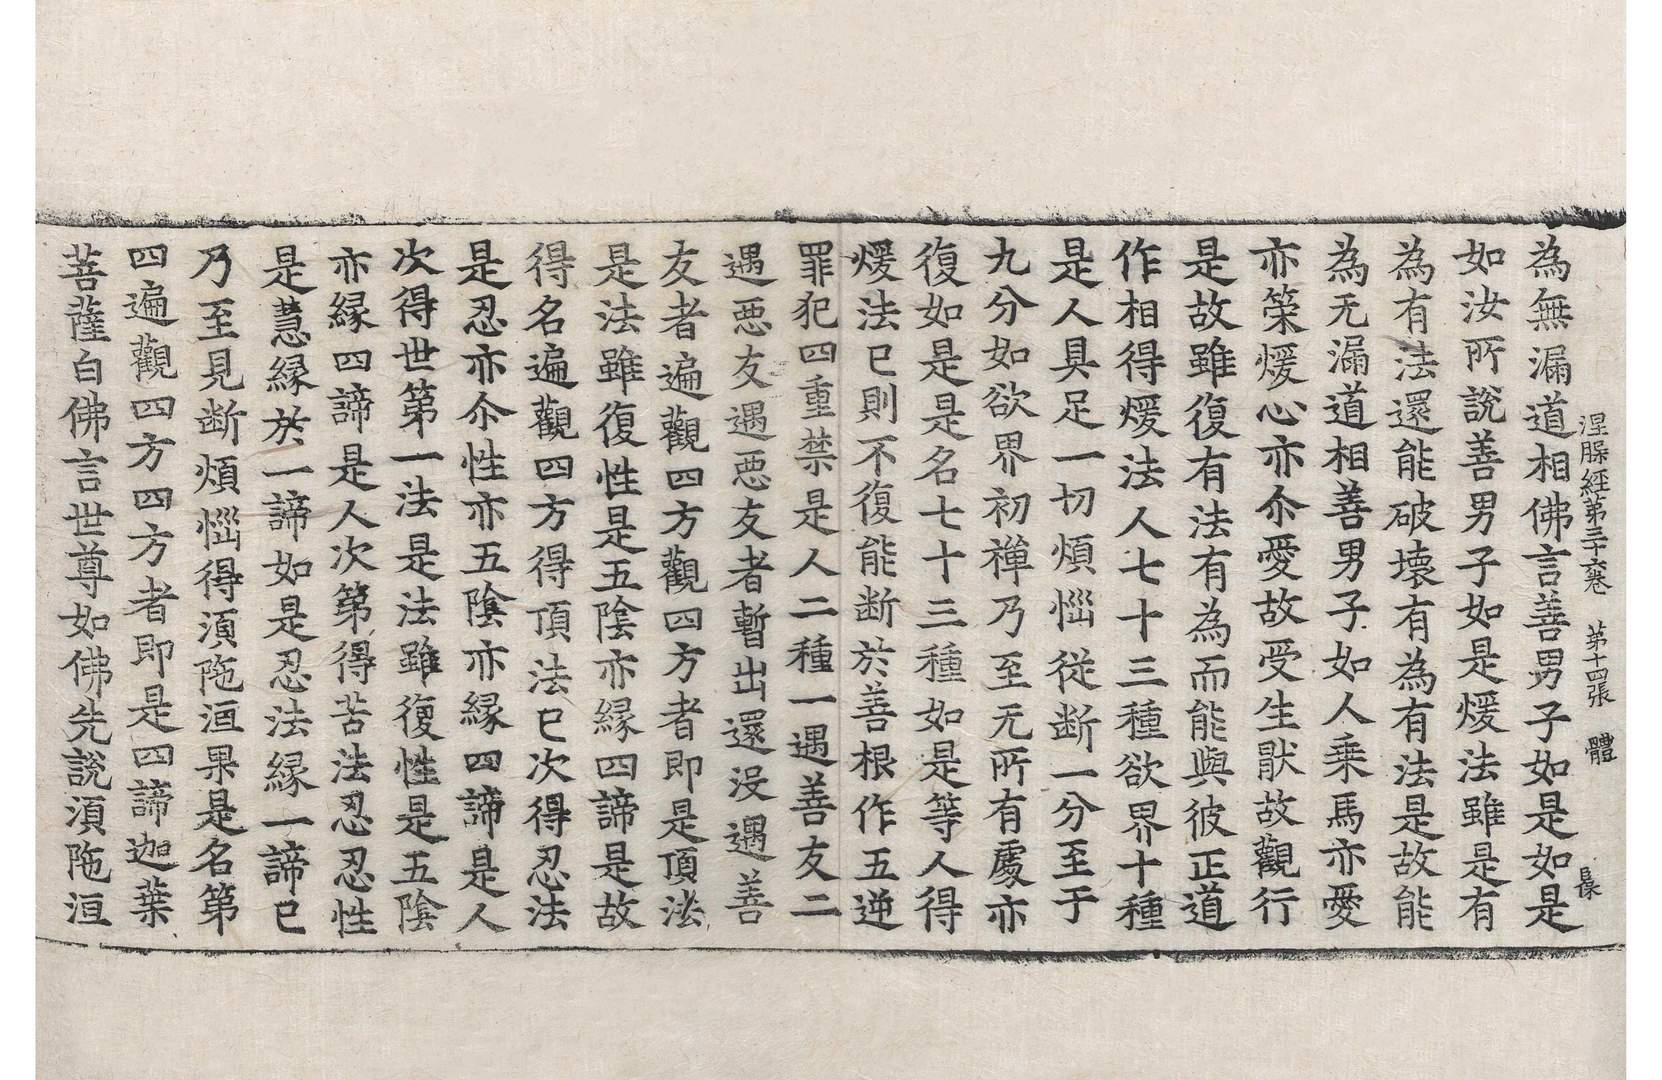 涅槃経第三十六卷 第十四張 體 㬎
為無漏道相佛言善男子如是如是
如汝所說善男子如是煖法雖是有
為有法還能破壞有為有法是故能
為无漏道相善男子如人乘馬亦愛
亦策煖心亦尒愛故受生猒故觀行
是故雖復有法有為而能與彼正道
作相得煖法人七十三種欲界十種
是人具足一切煩惱從断一分至于
九分如欲界初禪乃至无所有處亦
復如是是名七十三種如是等人得
煖法已則不復能断於善根作五逆
罪犯四重禁是人二種一遇善友二
遇惡友遇惡友者暫出還没遇善
友者遍觀四方觀四方者即是頂法
是法雖復性是五陰亦緣四諦是故
得名遍觀四方得頂法已次得忍法
是忍亦尒性亦五陰亦緣四諦是人
次得世第一法是法雖復性是五陰
亦緣四諦是人次第得苦法忍忍性
是慧緣於一諦如是忍法緣一諦已
乃至見断煩惱得湏陁洹果是名第
四遍觀四方四方者即是四諦迦葉
菩薩白佛言世尊如佛先說湏陁洹